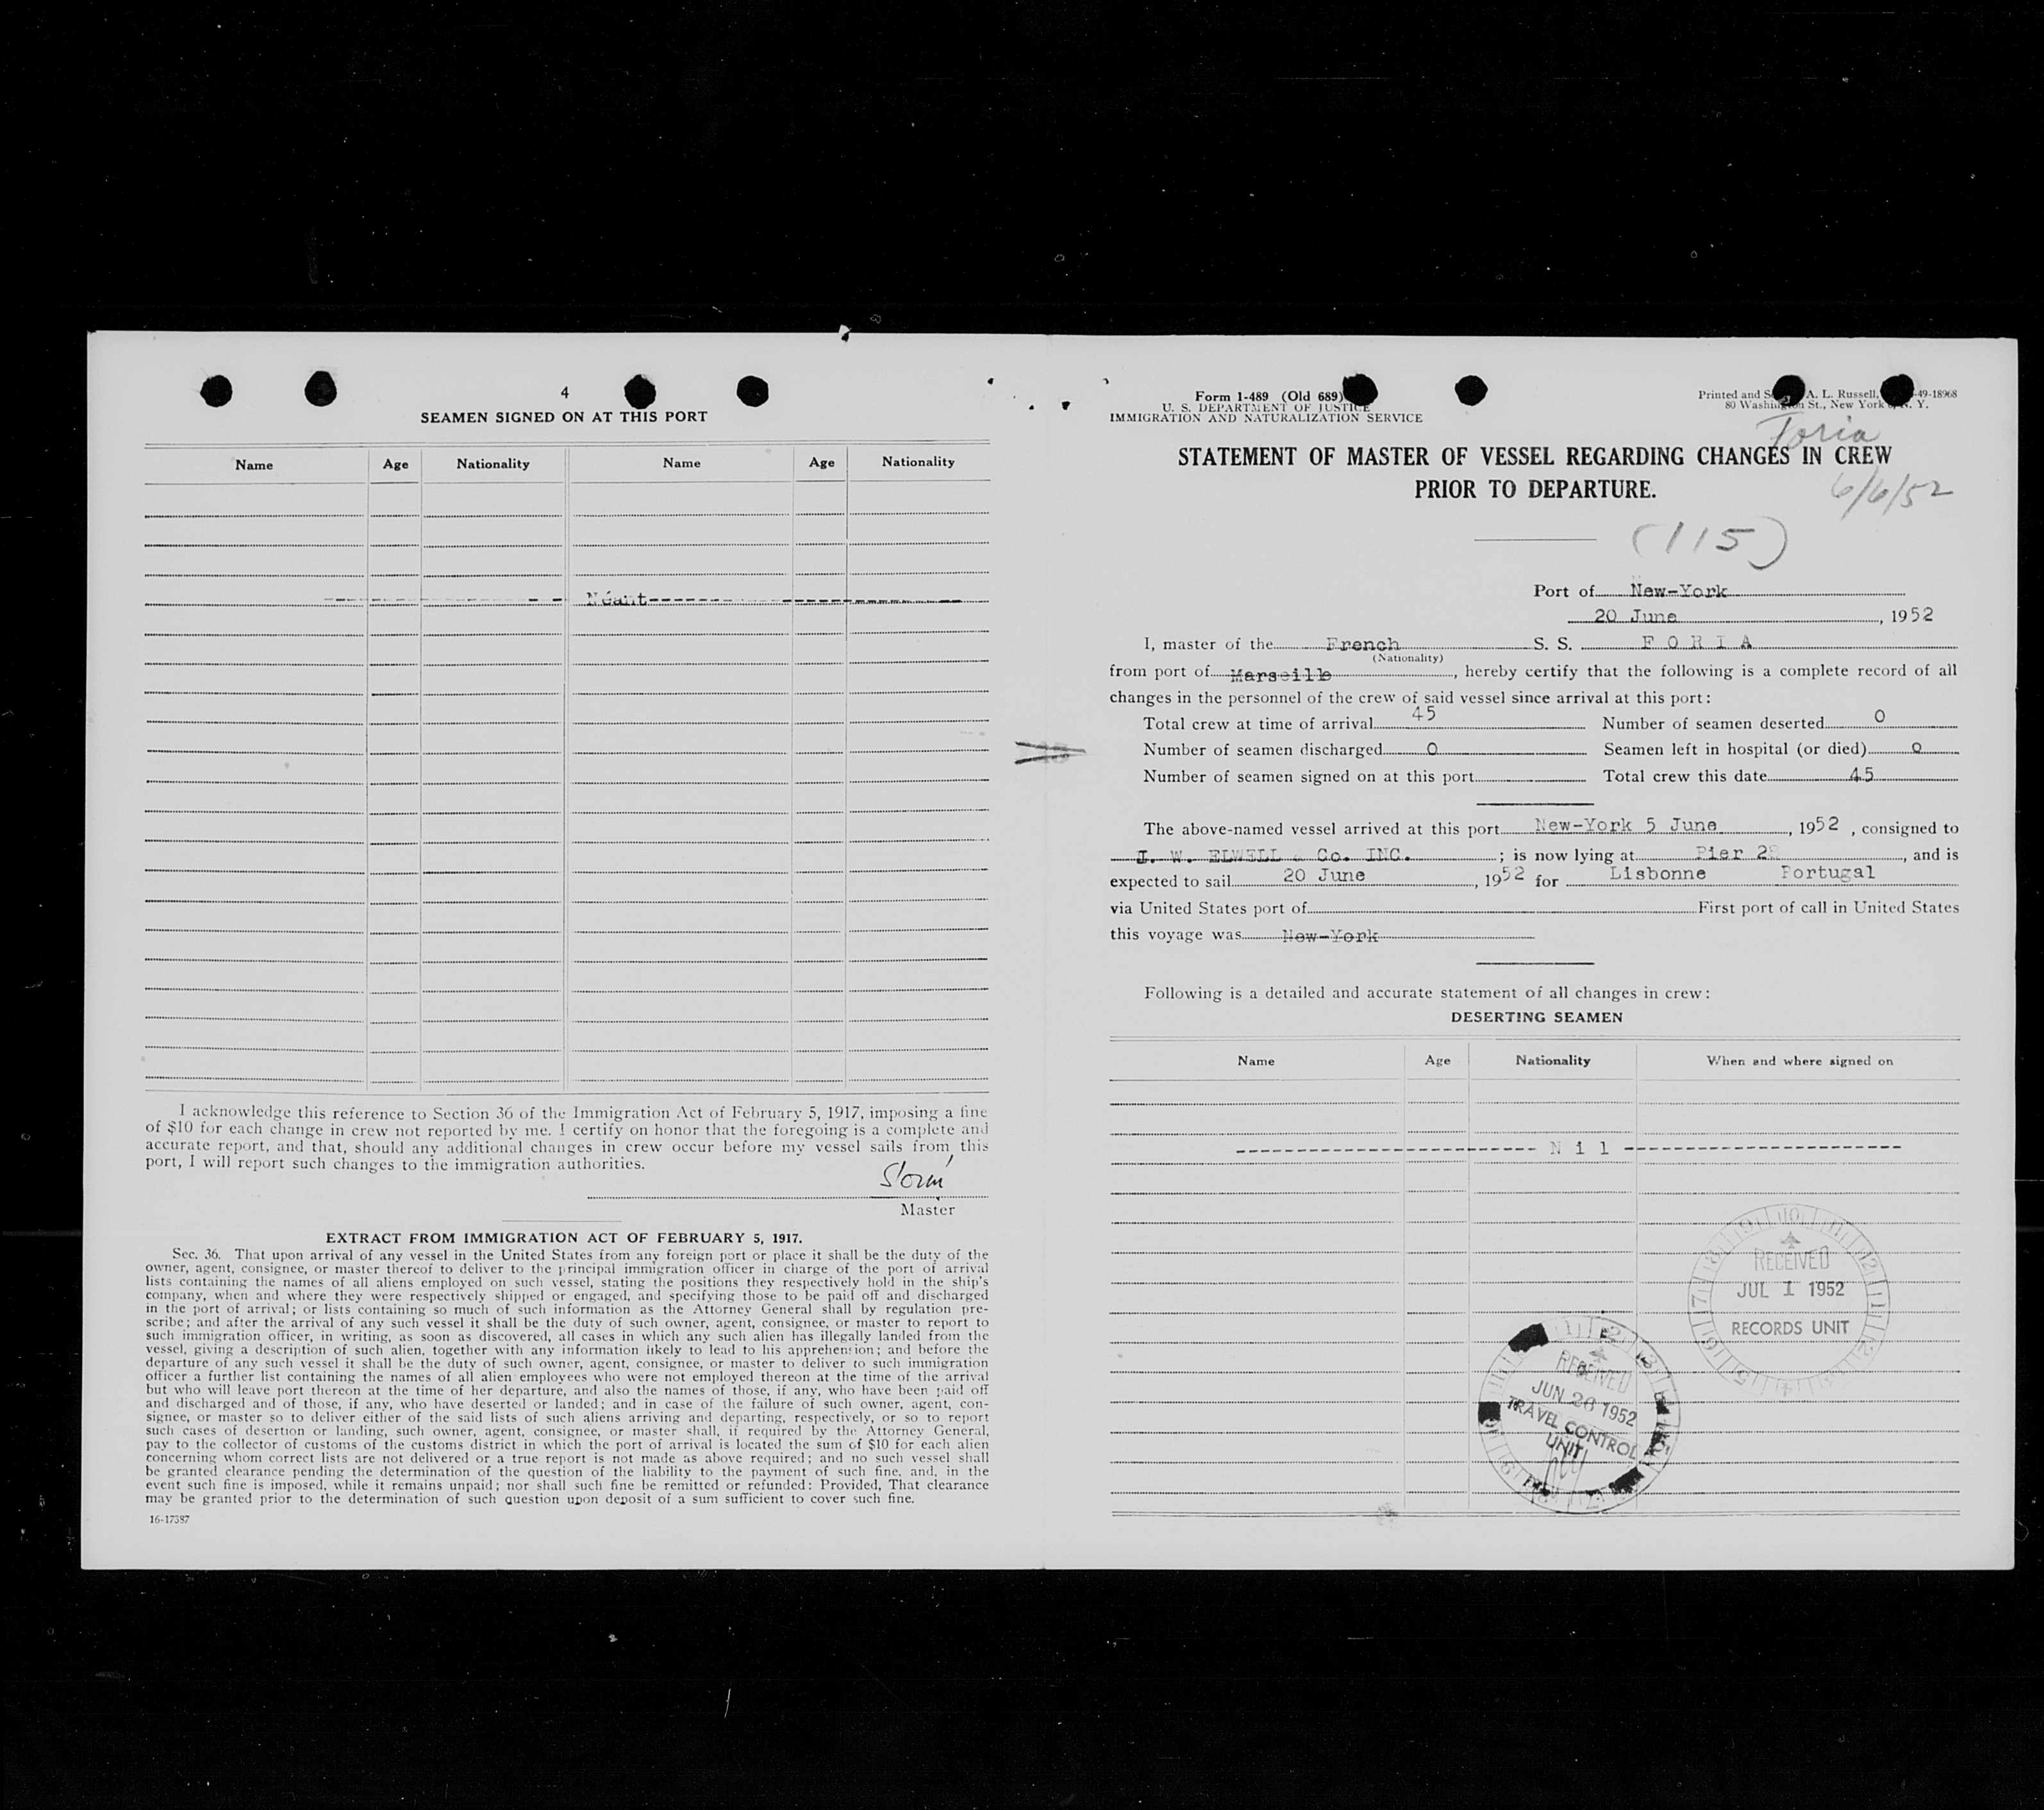 4
SEAMEN SIGNED ON AT THIS PORT
Name Age Nationality Name Age Nationality
Néant
I acknowledge this reference to Section 36 of the Immigration Act of February 5, 1917, imposing a fine
of $10 for each change in crew not reported by me. I certify on honor that the foregoing is a complete and
accurate report, and that, should any additional changes in crew occur before my vessel sails from this
port, I will report such changes to the immigration authorities.
Master
EXTRACT FROM IMMIGRATION ACT OF FEBRUARY 5, 1917.
Sec. 36. That upon arrival of any vessel in the United States from any foreign port or place it shall be the duty of the
owner, agent, consignee, or master thereof to deliver to the principal immigration officer in charge of the port of arrival
lists containing the names of all aliens employed on such vessel, stating the positions they respectively hold in the ship's
company, when and where they were respectively shipped or engaged, and specifying those to be paid off and discharged
in the port of arrival; or lists containing so much of such information as the Attorney General shall by regulation pre-
scribe; and after the arrival of any such vessel it shall be the duty of such owner, agent, consignee, or master to report to
such immigration officer, in writing, as soon as discovered, all cases in which any such alien has illegally landed from the
vessel, giving a description of such alien, together with any information likely to lead to his apprehension; and before the
departure of any such vessel it shall be the duty of such owner, agent, consignee, or master to deliver to such immigration
officer a further list containing the names of all alien employees who were not employed thereon at the time of the arrival
but who will leave port thereon at the time of her departure, and also the names of those, if any, who have been paid off
and discharged and of those, if any, who have deserted or landed; and in case of the failure of such owner, agent, con-
signee, or master so to deliver either of the said lists of such aliens arriving and departing, respectively, or so to report
such cases of desertion or landing, such owner, agent, consignee, or master shall, if required by the Attorney General,
pay to the collector of customs of the customs district in which the port of arrival is located the sum of $10 for each alien
concerning whom correct lists are not delivered or a true report is not made as above required; and no such vessel shall
be granted clearance pending the determination of the question of the liability to the payment of such fine, and, in the
event such fine is imposed, while it remains unpaid; nor shall such fine be remitted or refunded: Provided, That clearance
may be granted prior to the determination of such question upon deposit of a sum sufficient to cover such fine.
16-17387
Form 1-489 (Old 689)
U. S. DEPARTMENT OF JUSTICE
IMMIGRATION AND NATURALIZATION SERVICE
Printed and A. L. Russell, 49-18968
80 Washington St., New York N. Y.
Foria
STATEMENT OF MASTER OF VESSEL REGARDING CHANGES IN CREW
PRIOR TO DEPARTURE.
6/6/52
(115)
Port of New-York
20 June, 1952
I, master of the French S. S. F O R I A
(Nationality)
from port of Marseille, hereby certify that the following is a complete record of all
changes in the personnel of the crew of said vessel since arrival at this port:
Total crew at time of arrival 45 Number of seamen deserted 0
Number of seamen discharged 0 Seamen left in hospital (or died) 0
Number of seamen signed on at this port Total crew this date 45
The above-named vessel arrived at this port New-York 5 June, 1952, consigned to
J. W. ELWELL & Co. INC.; is now lying at Pier, and is
expected to sail 20 June, 1952 for Lisbonne Portugal
via United States port of First port of call in United States
this voyage was New-York
Following is a detailed and accurate statement of all changes in crew:
DESERTING SEAMEN
Name Age Nationality When and where signed on
N i l
RECEIVED
JUL 1 1952
RECORDS UNIT
RECEIVED
JUN 26 1952
TRAVEL CONTROL
UNIT